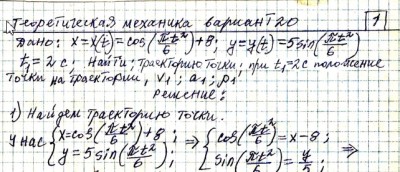 Теоретическая механика вариант 20
1
Дано: x=x(t)=cos(πt²/6)+8; y=y(t)=5sin(πt²/6)
t₁=2c. Найти: траекторию точки; при t₁=2c положение
точки на траектории, v₁; a₁; ρ₁
Решение:
1) Найдем траекторию точки.
У нас {x=cos(πt²/6)+8; y=5sin(πt²/6); ⇒ {cos(πt²/6)=x-8; sin(πt²/6)=y/5; ⇒